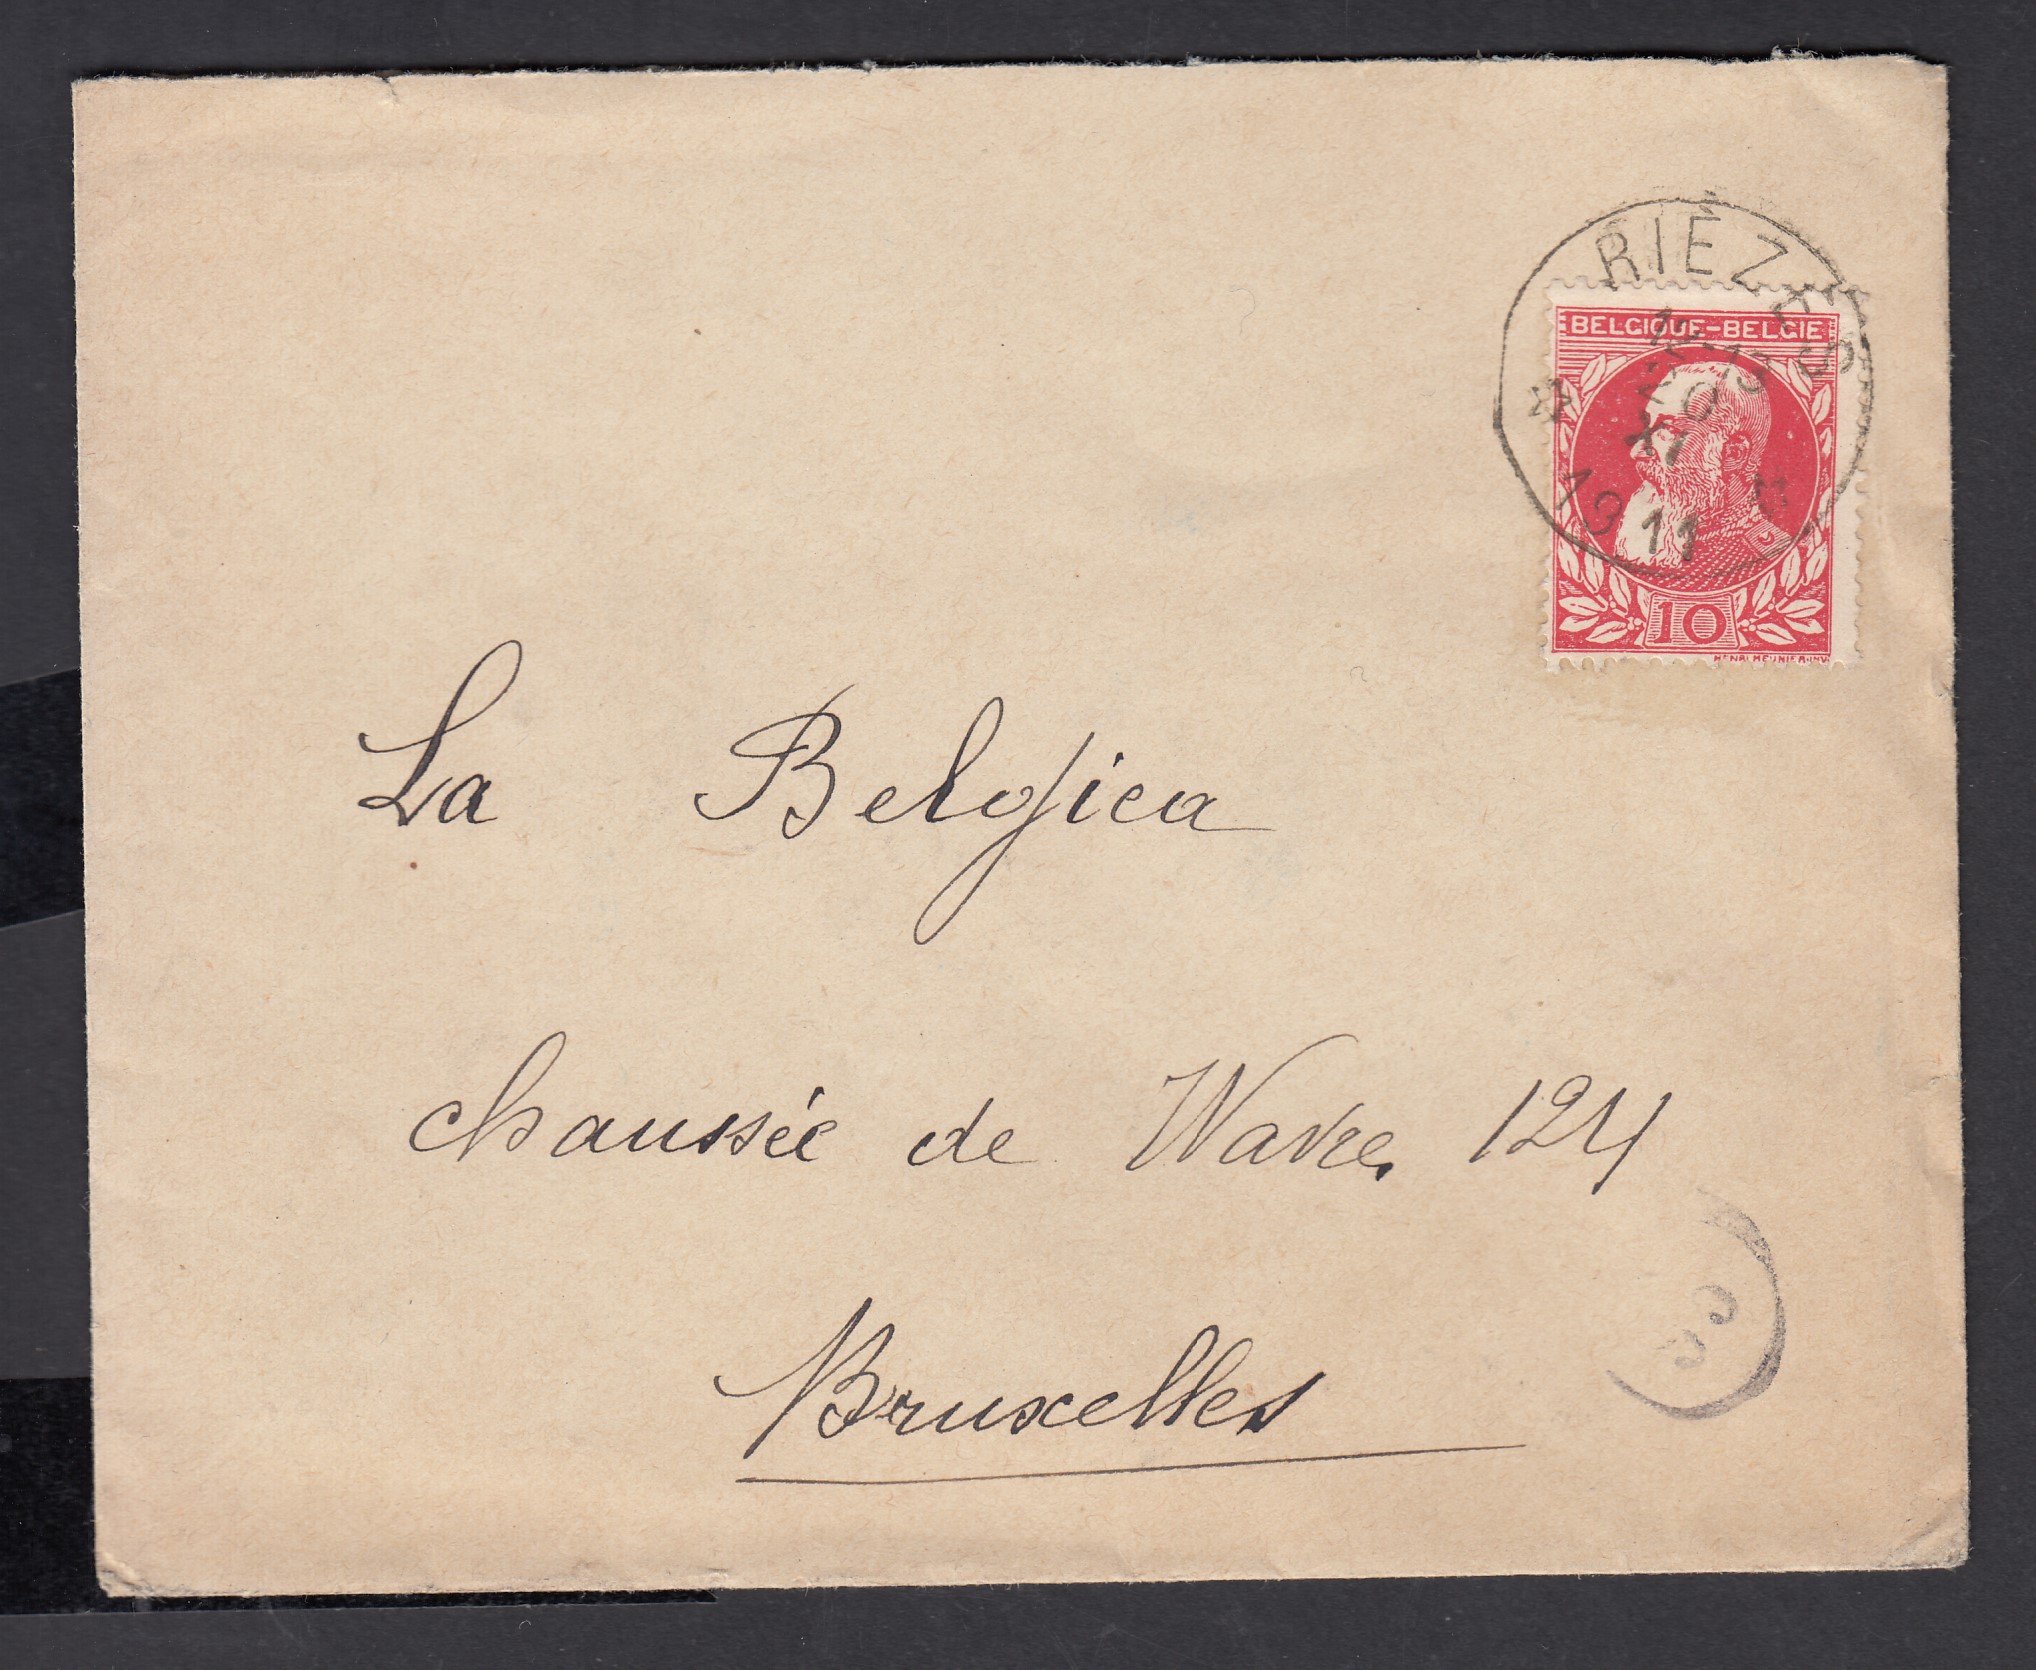 RIÈZES
BELGIQUE-BELGIE
12-13
20
XI
1911
10
HENRI MEUNIER·INV.
La Belgica
chaussée de Wavre, 124
Bruxelles